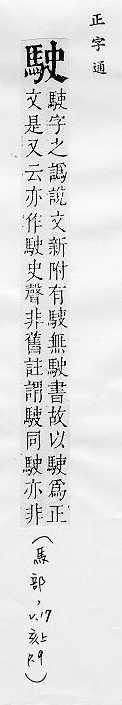 正字通
駛
駛字之譌說文新附有駛無駛書故以駛爲正
文是又云亦作駛史聲非舊註謂駛同駛亦非
(馬部,v.17亥上p.9)